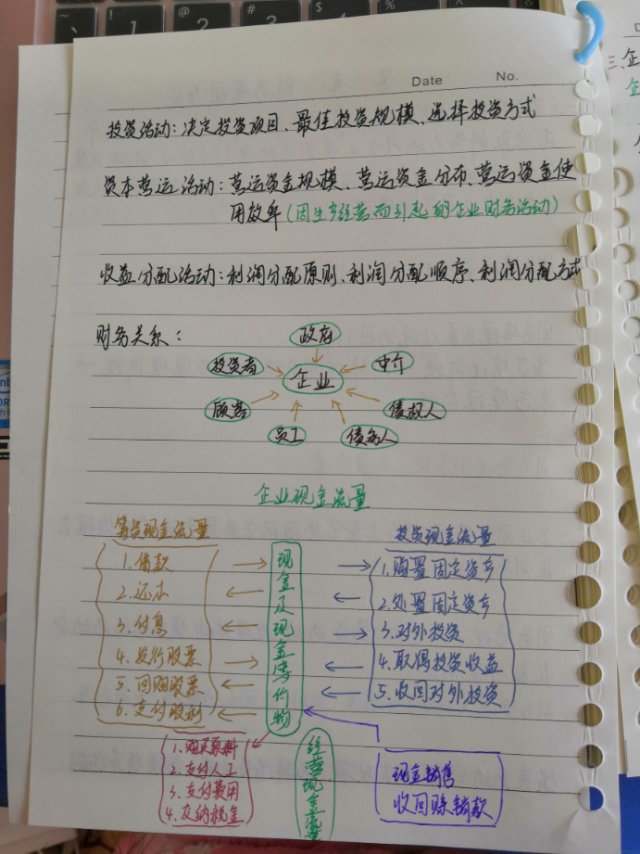 Date No.
投资活动：决定投资项目、最佳投资规模、选择投资方式
资本营运活动：营运资金规模、营运资金分布、营运资金使
用效率（因生产经营而引起的企业财务活动）
收益分配活动：利润分配原则、利润分配顺序、利润分配方式
财务关系：
政府
投资者
企业
中介
顾客
债权人
员工
债务人
企业现金流量
筹资现金流量
1.借款
2.还本
3.付息
4.发行股票
5.回购股票
6.支付股利
现金及现金等价物
投资现金流量
1.购置固定资产
2.处置固定资产
3.对外投资
4.取得投资收益
5.收回对外投资
1.购买原料
2.支付人工
3.支付费用
4.交纳税金
经营现金流量
现金销售
收回赊销款